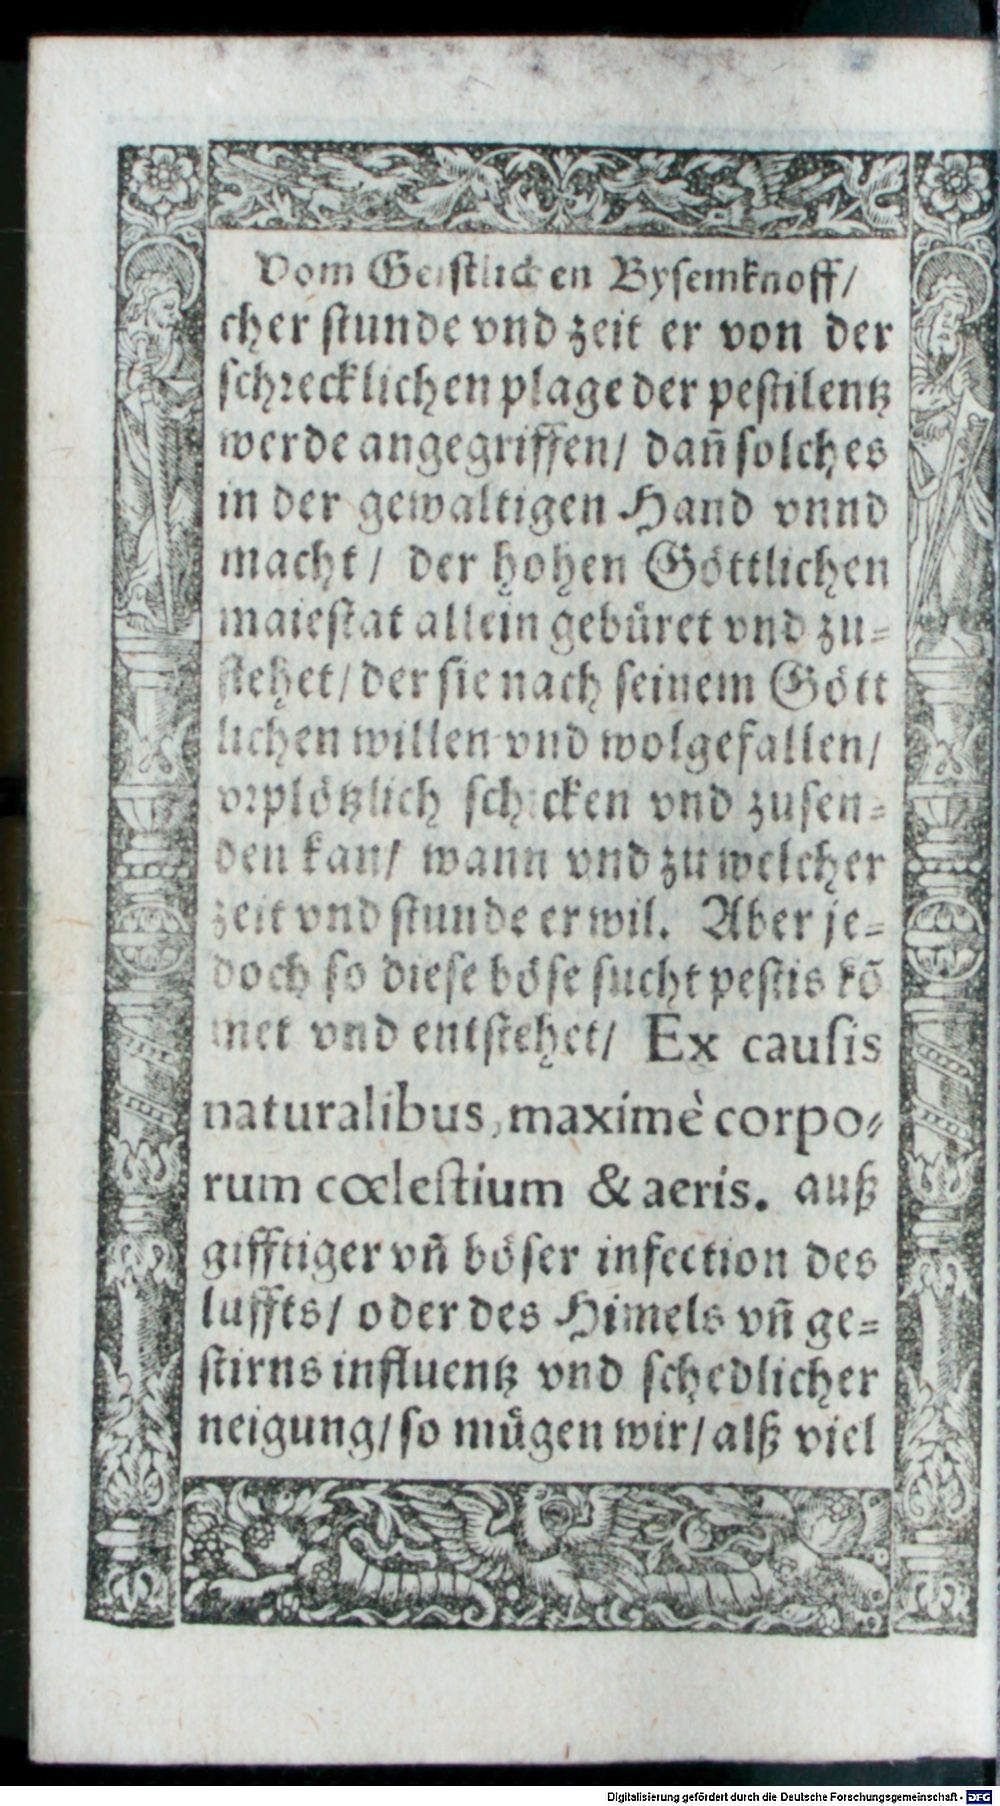 Vom Geistlichen Bysemknoff/
cher stunde vnd zeit er von der
schrecklichen plage der pestilentz
werde angegriffen/ dañ solches
in der gewaltigen Hand vnnd
macht/ der hohen Göttlichen
maiestat allein gebüret vnd zu=
stehet/ der sie nach seinem Gött
lichen willen vnd wolgefallen/
vrplötzlich schicken vnd zusen=
den kan/ wann vnd zu welcher
zeit vnd stunde er wil. Aber je=
doch so diese böse sucht pestis kõ
met vnd entstehet/ Ex causis
naturalibus, maximè corpo=
rum cœlestium & aeris. auß
gifftiger vñ böser infection des
luffts/ oder des Himels vñ ge=
stirns influentz vnd schedlicher
neigung/ so mügen wir/ alß viel
Digitalisierung gefördert durch die Deutsche Forschungsgemeinschaft - DFG